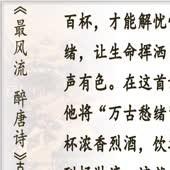 《最风流 醉唐诗》
百杯，才能解忧
绪，让生命挥洒
声有色。在这首
他将“万古愁绪
杯浓香烈酒，饮